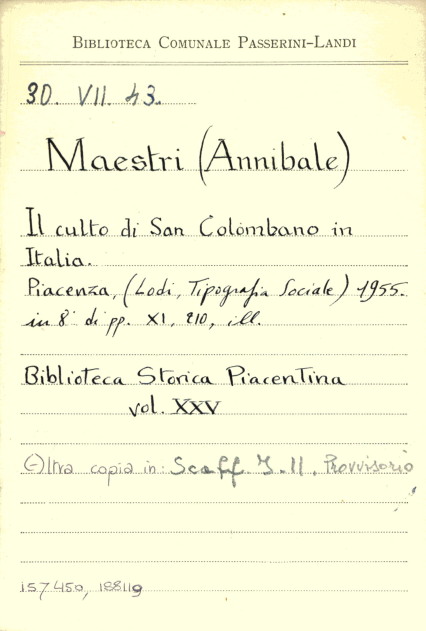 BIBLIOTECA COMUNALE PASSERINI-LANDI
30. VII. 43.
Maestri (Annibale)
Il culto di San Colombano in
Italia.
Piacenza, (Lodi, Tipografia Sociale) 1955.
in 8° di pp. XI, 210, ill.
Biblioteca Storica Piacentina
vol. XXV
Altra copia in: Scaff. I. 11. Provvisorio
157450, 188119